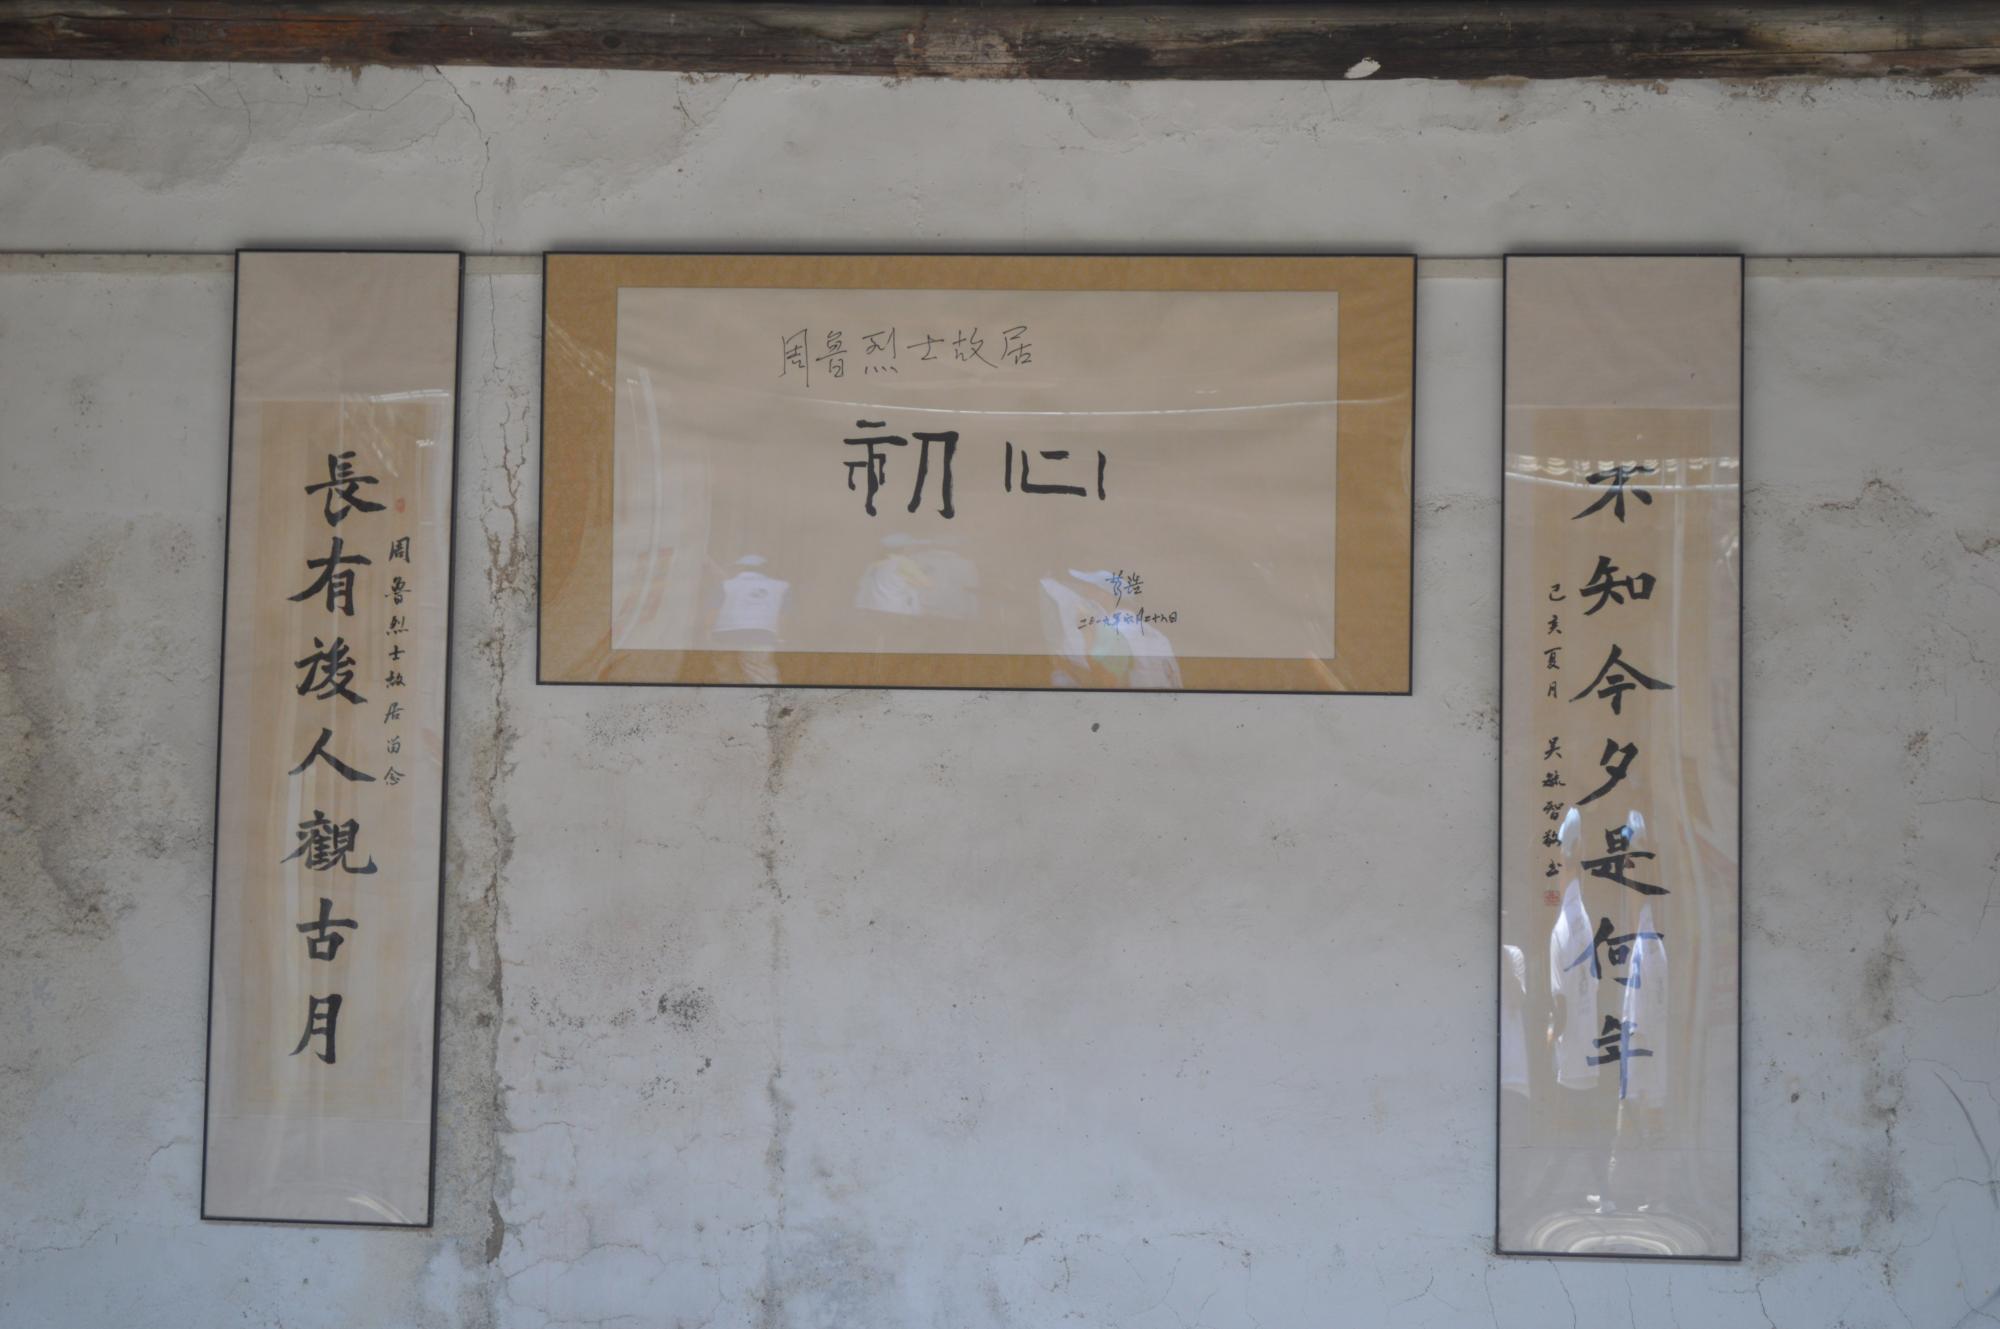 長有後人觀古月
周魯烈士故居留念
周魯烈士故居
初心
二〇一九年六月二十八日
不知今夕是何年
己亥夏月 吴毓智敬书